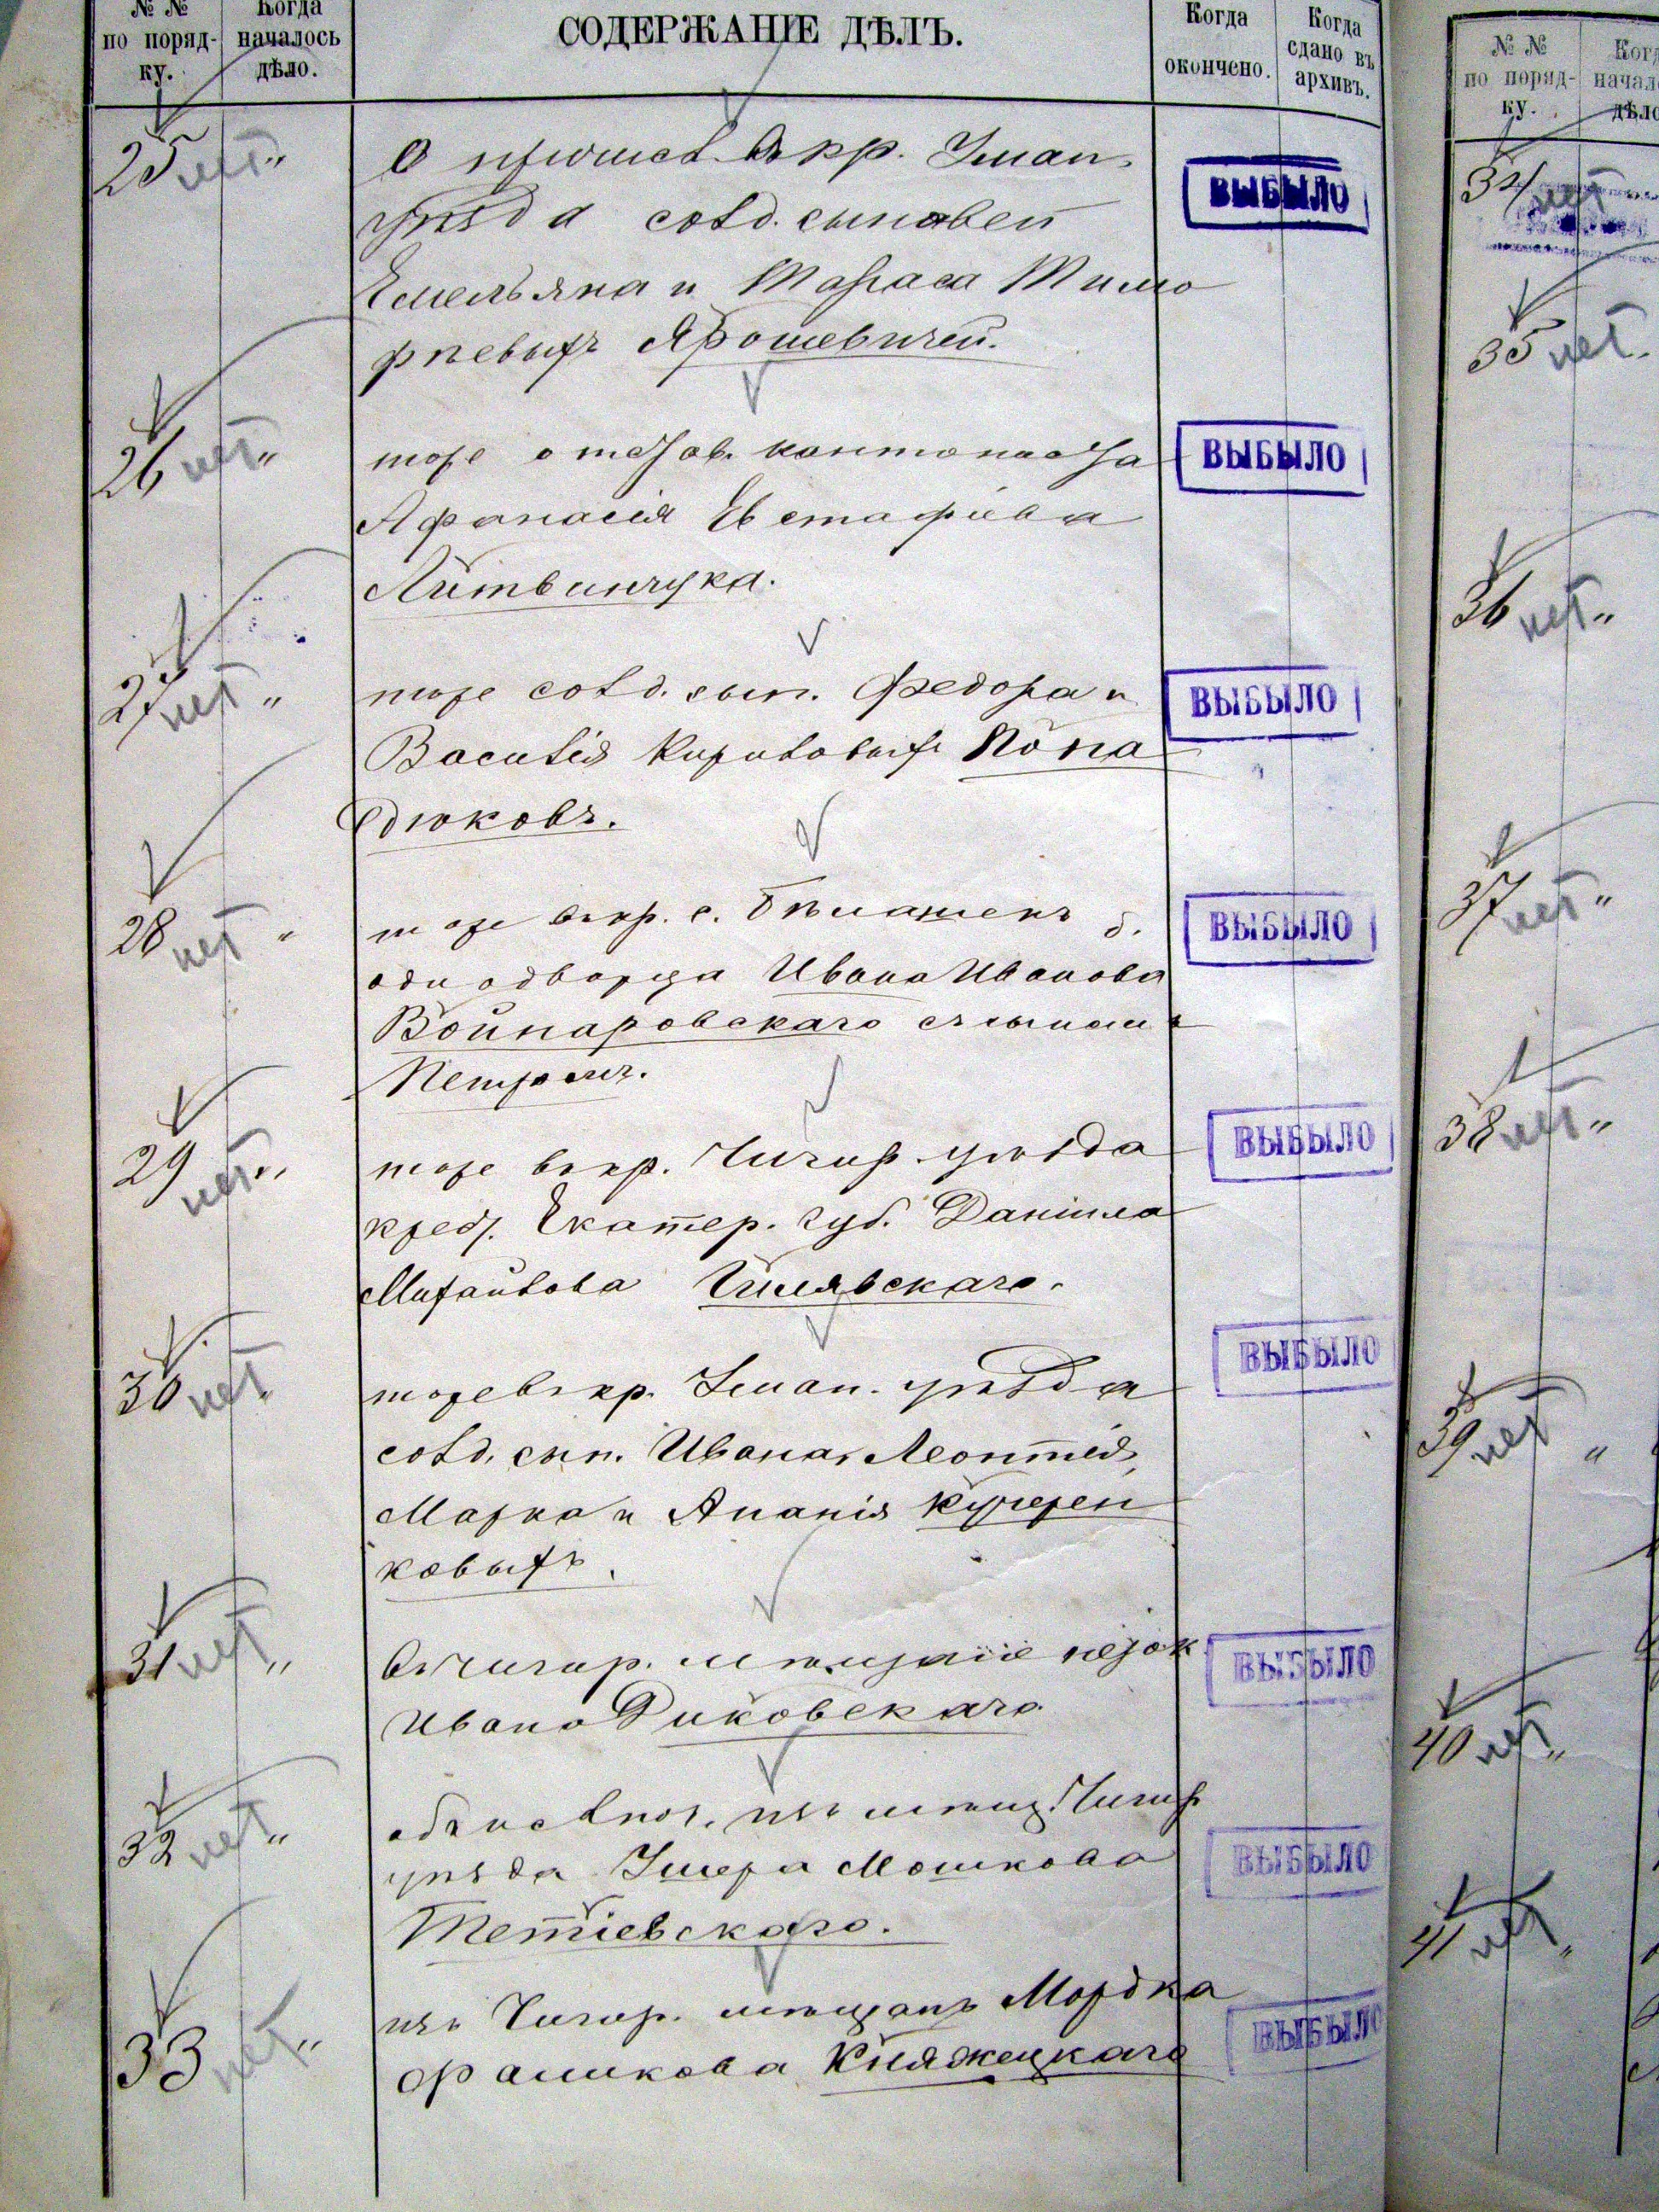 № №
по поряд-
ку.
Когда
началось
дѣло.
СОДЕРЖАНІЕ ДѢЛЪ.
Когда
окончено.
Когда
сдано въ
архивъ.
25 нет „
О причисл. въ кр. Уман.
уѣзда солд. сыновей
Емельяна и Тараса Тимо
фѣевыхъ Ярошевичей.
ВЫБЫЛО
26 нет „
тоже
Афанасія Евстафіева
Литвинчука.
ВЫБЫЛО
27 нет „
тоже солд. сын. Федора и
Василія Кириловыхъ Пона
дюковъ.
ВЫБЫЛО
28 нет „
тоже въ кр. с. б.
однодворца Ивана Иванова
Войнаровскаго съ сыномъ
Петромъ.
ВЫБЫЛО
29 нет „
тоже въ кр. Чигир. уѣзда
Екатер. губ. Даніила
Михайлова
ВЫБЫЛО
30 нет „
тоже въ кр. Уман. уѣзда
солд. сын. Ивана, Леонтія,
Марка и Ананія Кучерен
ковыхъ.
ВЫБЫЛО
31 нет „
въ Чигир. мѣщане
Ивана Диковскаго
ВЫБЫЛО
32 нет „
объ исключ. изъ мѣщ. Чигир
уѣзда Умера Мошкова
Тетіевскаго.
ВЫБЫЛО
33 нет „
изъ Чигир. мѣщанъ Мордка
Фроимкова Княжецкаго
ВЫБЫЛО
№ №
по поряд-
ку.
34 нет
35 нет „
36 нет „
37 нет „
38 нет „
39 нет „
40 нет „
41 нет „